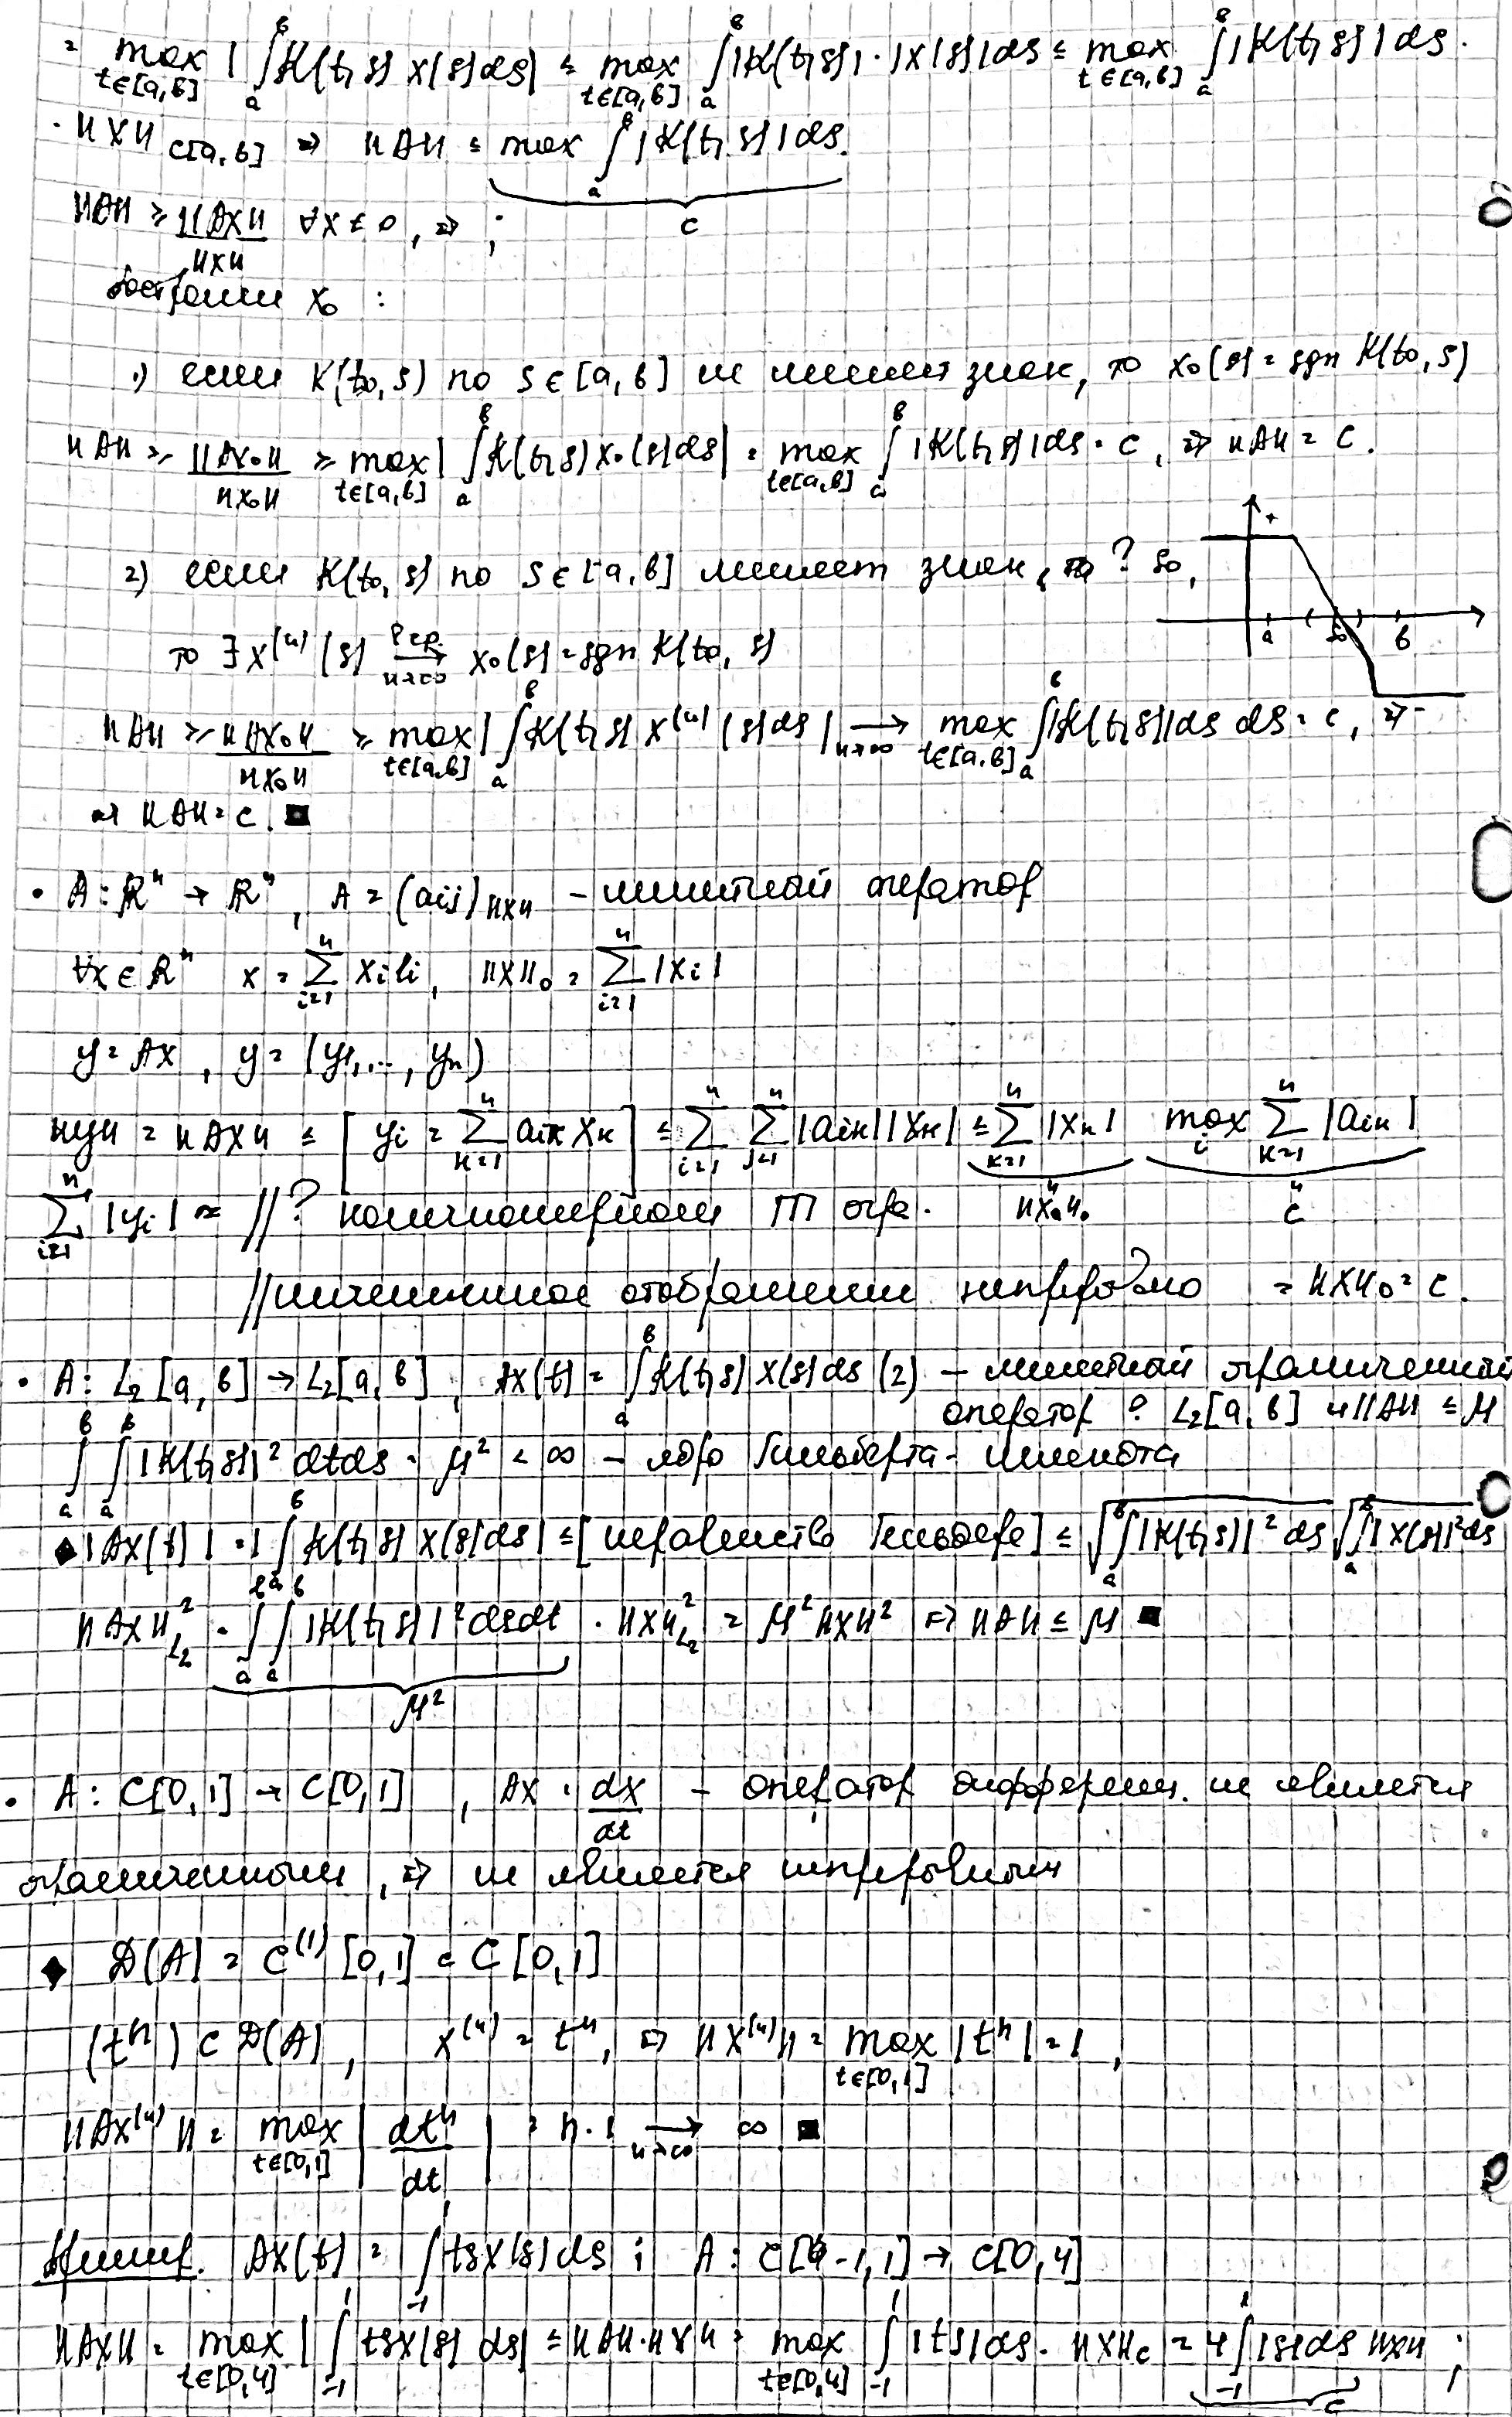 = max_{t∈[a,b]} | ∫_a^b K(t,s) x(s)ds| ≤ max_{t∈[a,b]} ∫_a^b |K(t,s)|·|x(s)|ds ≤ max_{t∈[a,b]} ∫_a^b |K(t,s)|ds ·
· ||x||_{C[a,b]} ⇒ ||A|| ≤ max ∫_a^b |K(t,s)|ds.
c
||A|| ≥ ||Ax||/||x|| ∀x ≠ 0, ⇒ ;
построим x₀ :
1) если K(t₀,s) по s∈[a,b] не меняет знак, то x₀(s) = sgn K(t₀,s)
||A|| ≥ ||Ax₀||/||x₀|| ≥ max_{t∈[a,b]} | ∫_a^b K(t,s)x₀(s)ds| = max_{t∈[a,b]} ∫_a^b |K(t,s)|ds = c, ⇒ ||A|| = c.
2) если K(t₀,s) по s∈[a,b] меняет знак, ? s₀,
+ a s₀ b
то ∃ x^{(n)}(s) →_{n→∞} x₀(s) = sgn K(t₀,s)
||A|| ≥ ||Ax₀||/||x₀|| ≥ max_{t∈[a,b]} | ∫_a^b K(t,s) x^{(n)}(s)ds | →_{n→∞} max_{t∈[a,b]} ∫_a^b |K(t,s)|ds ds = c, ⇒
⇒ ||A|| = c. ■
• A: ℝⁿ → ℝⁿ, A = (aij)_{n×n} – линейный оператор
∀x∈ℝⁿ x = ∑_{i=1}^n x_i l_i, ||x||₀ = ∑_{i=1}^n |x_i|
y = Ax, y = (y₁,..., y_n)
||y|| = ||Ax|| ≤ [y_i = ∑_{k=1}^n a_{ik} x_k] ≤ ∑_{i=1}^n ∑_{j=1}^n |a_{ik}||x_k| ≤ ∑_{k=1}^n |x_k| max_i ∑_{k=1}^n |a_{ik}|
∑_{i=1}^n |y_i| = //? конечномерном огр. ||x||₀ c
// отображение непрерывно = ||x||₀ = c.
• A: L₂[a,b] → L₂[a,b], Ax(t) = ∫_a^b K(t,s) x(s)ds (2) – линейный ограниченный
оператор ? L₂[a,b] и ||A|| ≤ M
∫_a^b ∫_a^b |K(t,s)|² dtds = M² < ∞ – ядро Гильберта-Шмидта
◆ |Ax(t)| = | ∫_a^b K(t,s) x(s)ds| ≤ [неравенство Гёльдера] ≤ √(∫_a^b |K(t,s)|² ds) √(∫_a^b |x(s)|²ds)
||Ax||²_{L₂} = ∫_a^b ∫_a^b |K(t,s)|² dsdt · ||x||²_{L₂} = M²||x||² ⇒ ||A|| ≤ M ■
M²
• A: C[0,1] → C[0,1], Ax = dx/dt – оператор дифферен. не является
ограниченным, ⇒ не является непрерывным
◆ D(A) = C^{(1)}[0,1] ⊂ C[0,1]
(tⁿ) ⊂ D(A), x^{(n)} = tⁿ, ⇒ ||x^{(n)}|| = max_{t∈[0,1]} |tⁿ| = 1,
||Ax^{(n)}|| = max_{t∈[0,1]} | dtⁿ/dt | = n·1 →_{n→∞} ∞ ■
Пример. Ax(t) = ∫_{-1}^1 tsx(s)ds ; A: C[-1,1] → C[0,4]
||Ax|| = max_{t∈[0,4]} | ∫_{-1}^1 tsx(s) ds| ≤ ||A||·||x|| = max_{t∈[0,4]} ∫_{-1}^1 |ts|ds · ||x||_C = 4 ∫_{-1}^1 |s|ds ||x|| ;
c